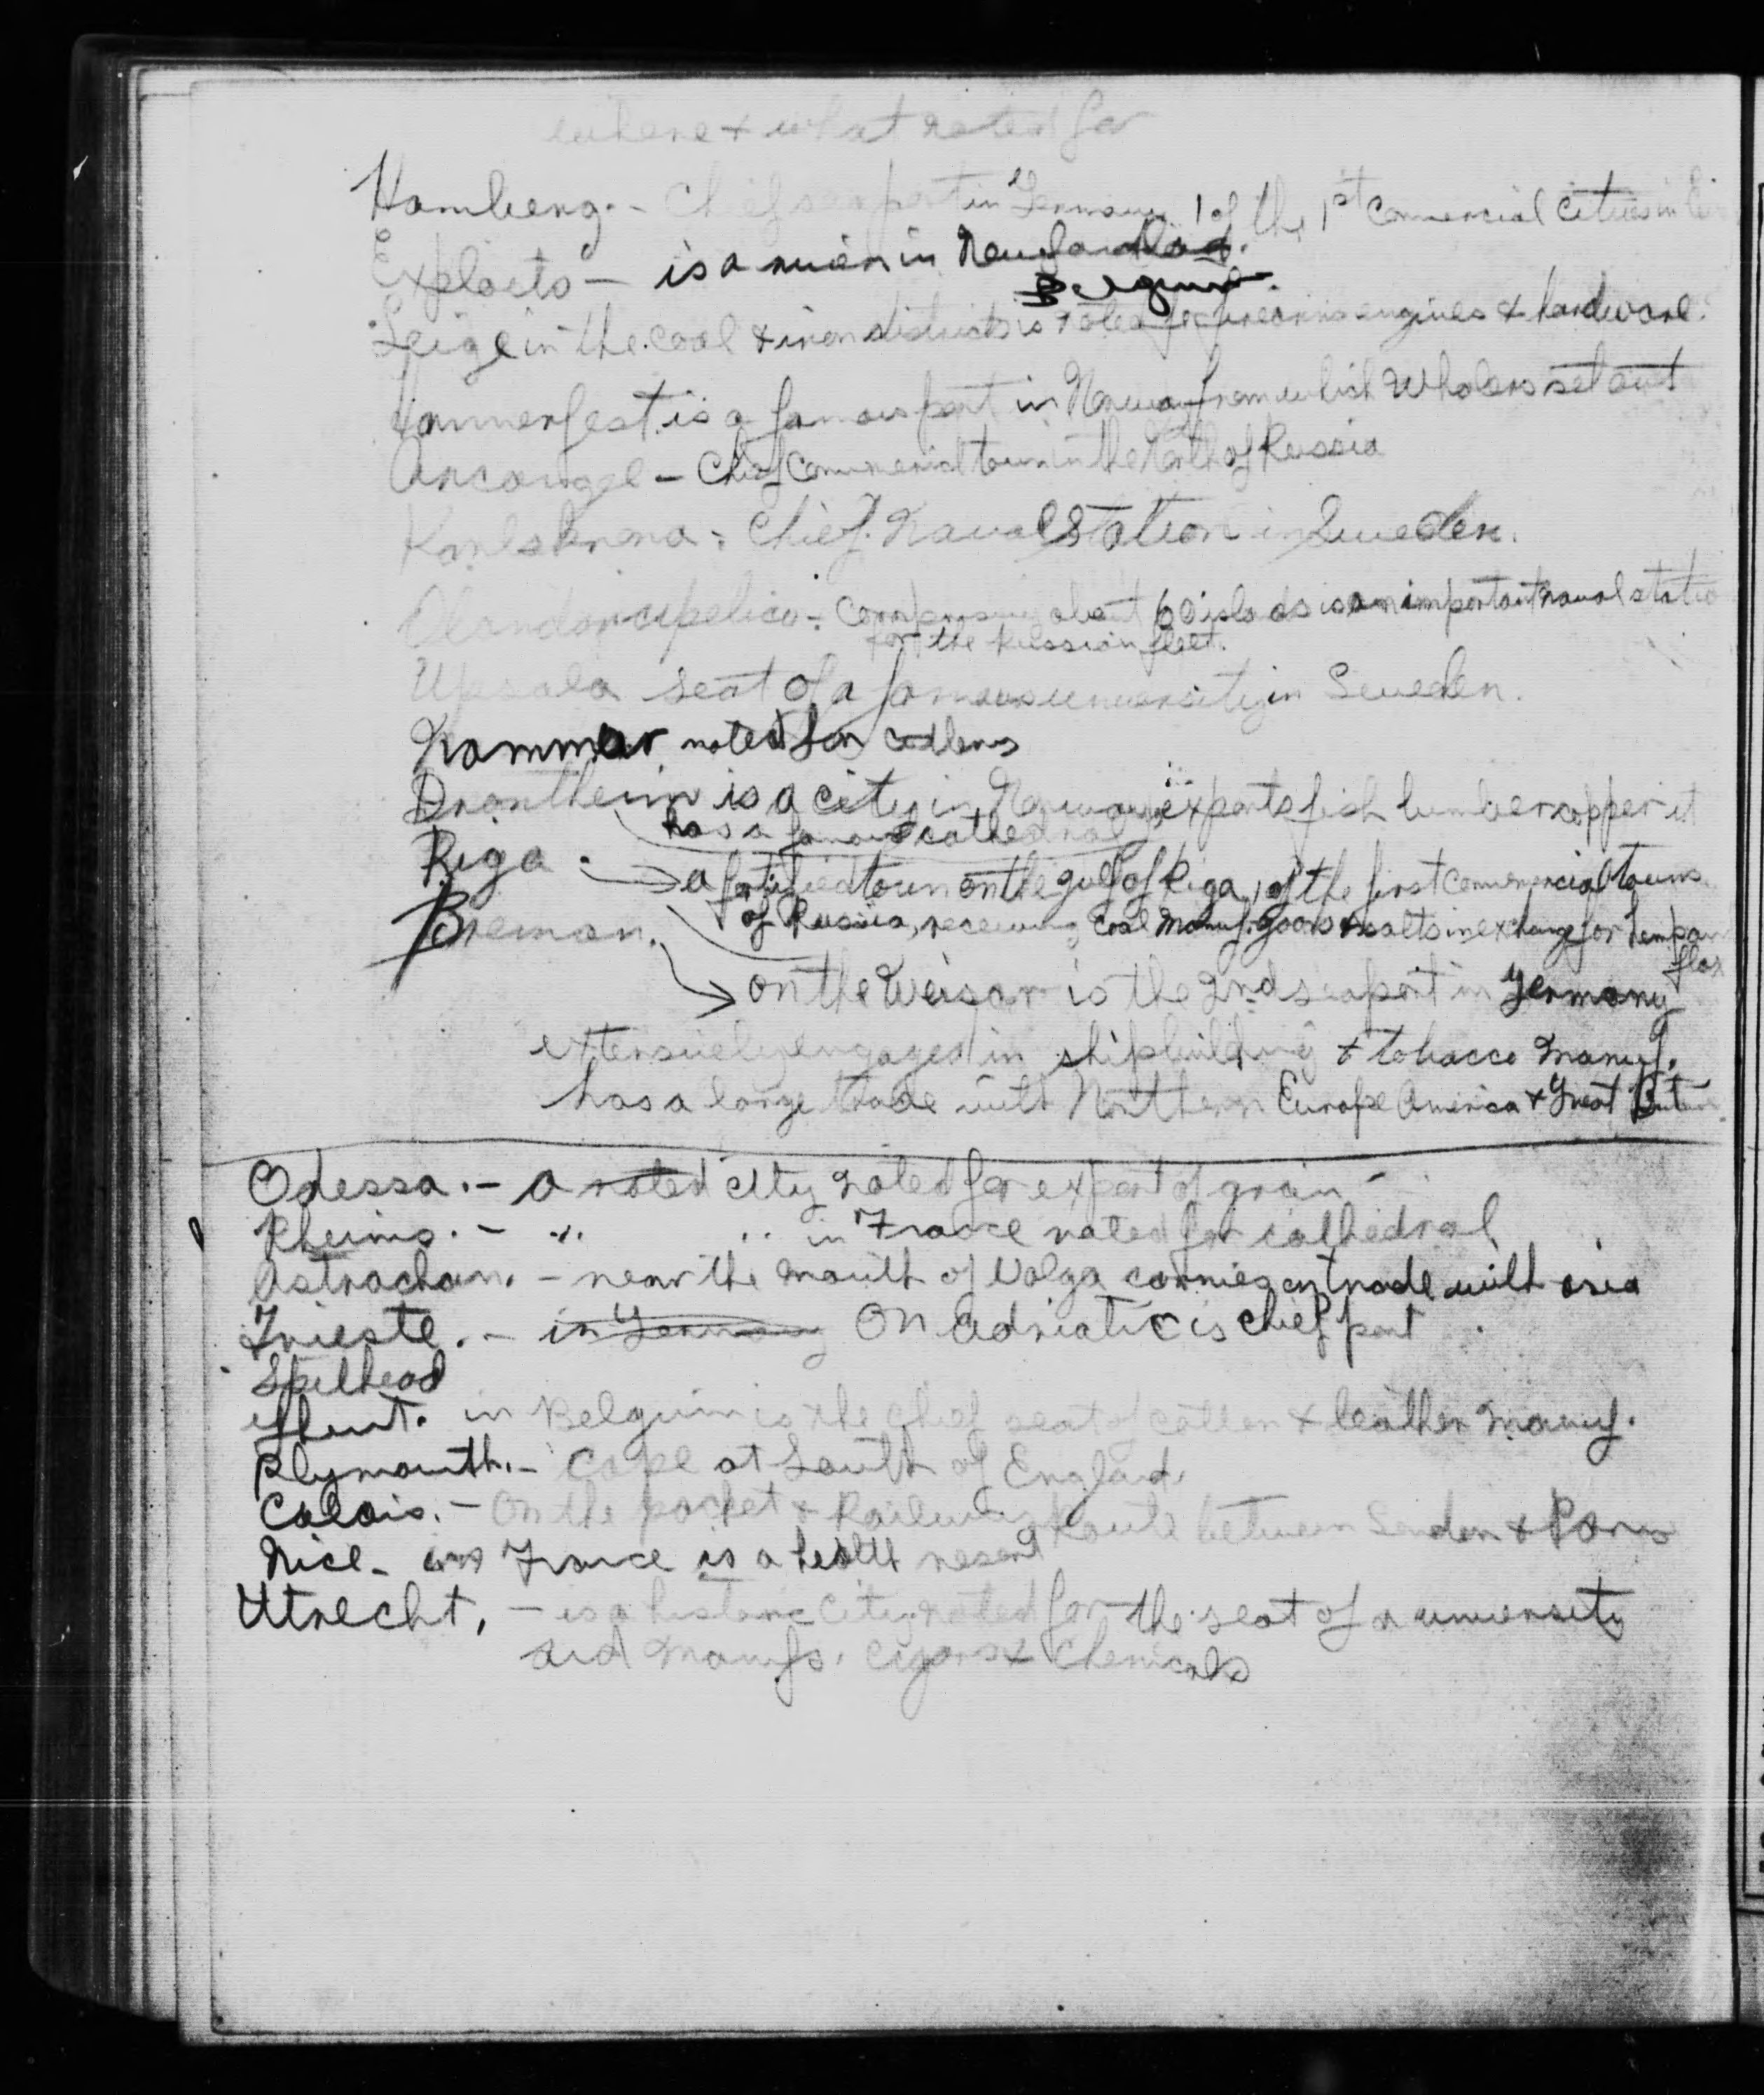 where & what noted for
Hamberg. - Chief seaport in Germany 1 of the 1st Commercial Cities in Eu
Exploits - is a river in Newfoundland.
Belguim.
Leige in the coal & iron districts is noted for firearms engines & hardware.
Hammerfest. is a famous port in Norway from which Whalers set out
Arcangel - Chief Commercial town in the North of Russia
Karlskrona: Chief. Naval Station in Sweden.
Alandarcipelico - Comprising about 60 islads is an important naval statio
for the Russian fleet.
Upsala seat of a famous university in Sweden.
noted for
Drontheim is a city in Norway. exports fish lumber copper it
has a famous cathedral
Riga. a fortified town on the gulf of Riga, 1 of the first commercial towns
of Russia, receiving coal manuf. goods & salts in exchange for hemp an
flax
Breman. on the Weisar is the 2nd seaport in Germany
extensively engaged in shipbuilding & tobacco manuf.
has a large trade with Northern Europe America & Great
Odessa. - a noted city noted for export of grain -
Rheims. - " " in France noted for cathedral
Astrachan. - near the mouth of Volga carries on trade with asia
Trieste. - in Germany On Adriatic is chief port
Spithead
Ghent. in Belguim is the chief seat of cotten & leather manuf.
Plymouth. - Cape at South of England.
Calais. - On the packet & Railway Route between London & Paris
Nice - in France is a health resort
Utrecht, - is a historic city noted for the seat of a university
and manufs. cigars & Chemicals